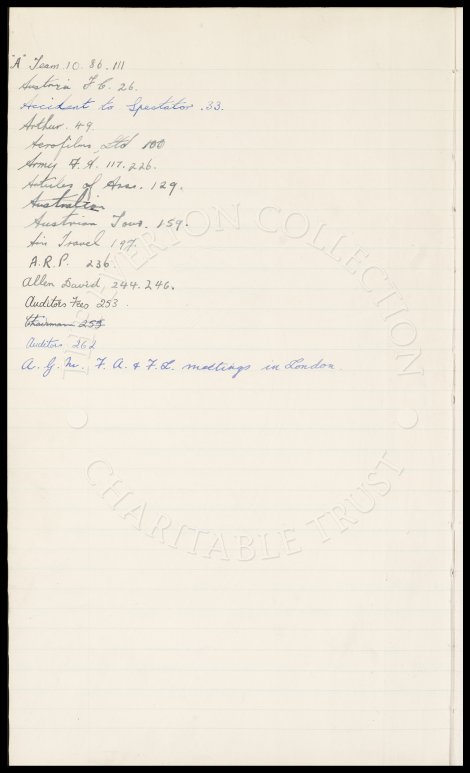 "A" Team. 10. 86. 111
Austria F.C. 26.
Accident to Spectator. 33.
Arthur. 49
Aerofilms Ltd 100
Army F.A. 117. 226.
Articles of Assn. 129.
Australia
Austrian Tour. 159.
Air Travel 197.
A.R.P. 236.
Allen David, 244. 246.
Auditors Fees 253.
Chairman 253
Auditors 262
A.G.M. F.A. & F.L. meetings in London.
THE EVERTON COLLECTION
CHARITABLE TRUST